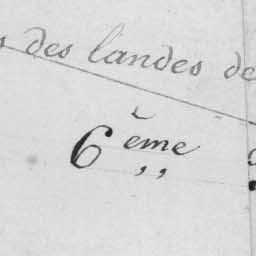 des landes de
6 ème